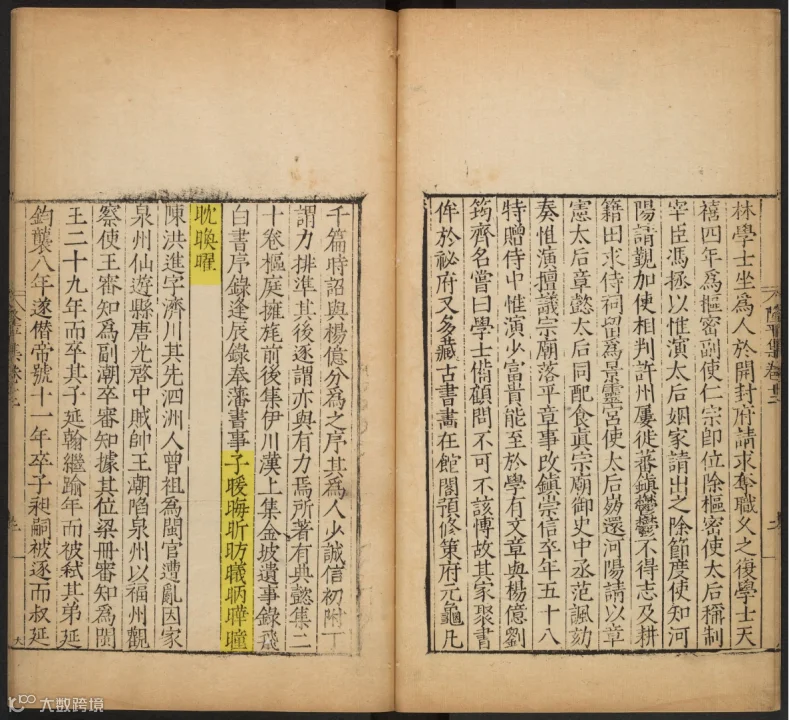 林學士坐爲人於開封府請求奪職久之復學士天
禧四年爲樞密副使仁宗卽位除樞密使太后稱制
宰臣馮拯以惟演太后姻家請出之除節度使知河
陽請覲加使相判許州屢徙蕃鎮鬱鬱不得志及耕
籍田求侍祠留爲景靈宮使太后崩還河陽請以章
憲太后章懿太后同配食眞宗廟御史中丞范諷劾
奏惟演擅議宗廟落平章事改鎮崇信卒年五十八
特贈侍中惟演少富貴能至於學有文章與楊億劉
筠齊名嘗曰學士備顧問不可不該愽故其家聚書
侔於祕府又多藏古書畵在館閣預修策府元龜凡
千篇時詔與楊億分爲之序其爲人少誠信初附丁
謂力排準其後逐謂亦與有力焉所著有典懿集二
十卷樞庭擁旄前後集伊川漢上集金坡遺事錄飛
白書序錄逢辰錄奉藩書事子暖晦昕昉曦昞曄曈
耽㬇曜
陳洪進字濟川其先泗洲人曾祖爲閩官遭亂因家
泉州仙遊縣唐光啓中賊帥王潮陷泉州以福州觀
察使王審知爲副潮卒審知據其位梁冊審知爲閩
王二十九年而卒其子延翰繼踰年而被弒其弟延
鈞襲八年遂僭帝號十一年卒子昶嗣被逐而叔延
隆平集卷
二
大数跨境